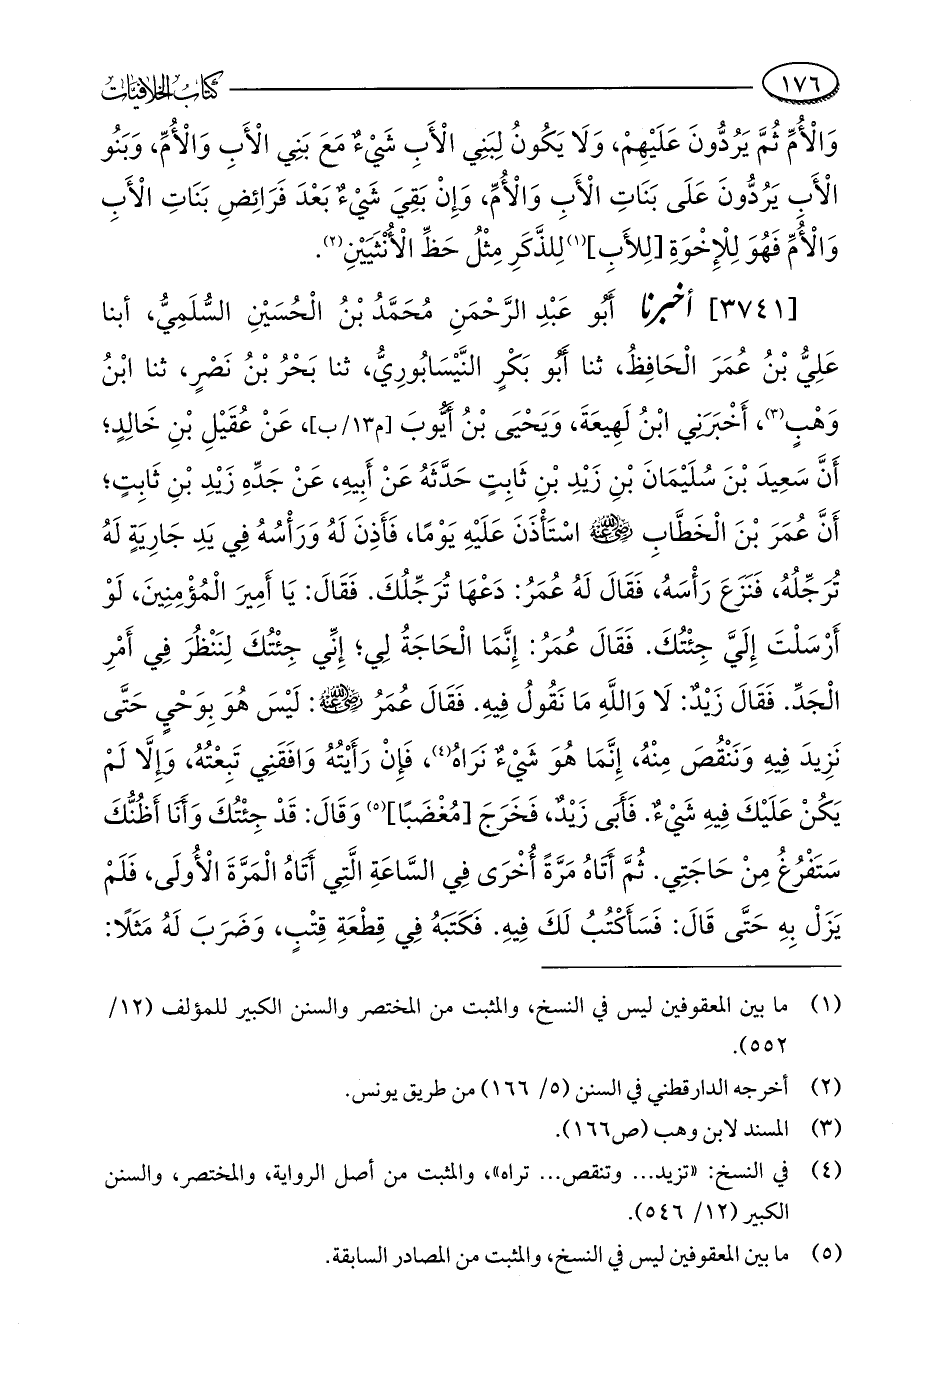 ١٧٦ كتاب الخلافيات
وَالْأُمِّ ثُمَّ يَرُدُّونَ عَلَيْهِمْ، وَلَا يَكُونُ لِبَنِي الْأَبِ شَيْءٌ مَعَ بَنِي الْأَبِ وَالْأُمِّ، وَبَنُو
الْأَبِ يَرُدُّونَ عَلَى بَنَاتِ الْأَبِ وَالْأُمِّ، وَإِنْ بَقِيَ شَيْءٌ بَعْدَ فَرَائِضِ بَنَاتِ الْأَبِ
وَالْأُمِّ فَهُوَ لِلْإِخْوَةِ [لِلأَبِ](١) لِلذَّكَرِ مِثْلُ حَظِّ الْأُنْثَيَيْنِ(٢).
[٣٧٤١] أخبرنا أَبُو عَبْدِ الرَّحْمَنِ مُحَمَّدُ بْنُ الْحُسَيْنِ السُّلَمِيُّ، أبنا
عَلِيُّ بْنُ عُمَرَ الْحَافِظُ، ثنا أَبُو بَكْرٍ النَّيْسَابُورِيُّ، ثنا بَحْرُ بْنُ نَصْرٍ، ثنا ابْنُ
وَهْبٍ(٣)، أَخْبَرَنِي ابْنُ لَهِيعَةَ، وَيَحْيَى بْنُ أَيُّوبَ [م١٣/ب]، عَنْ عُقَيْلِ بْنِ خَالِدٍ؛
أَنَّ سَعِيدَ بْنَ سُلَيْمَانَ بْنِ زَيْدِ بْنِ ثَابِتٍ حَدَّثَهُ عَنْ أَبِيهِ، عَنْ جَدِّهِ زَيْدِ بْنِ ثَابِتٍ؛
أَنَّ عُمَرَ بْنَ الْخَطَّابِ رضي الله عنه اسْتَأْذَنَ عَلَيْهِ يَوْمًا، فَأَذِنَ لَهُ وَرَأْسُهُ فِي يَدِ جَارِيَةٍ لَهُ
تُرَجِّلُهُ، فَنَزَعَ رَأْسَهُ، فَقَالَ لَهُ عُمَرُ: دَعْهَا تُرَجِّلُكَ. فَقَالَ: يَا أَمِيرَ الْمُؤْمِنِينَ، لَوْ
أَرْسَلْتَ إِلَيَّ جِئْتُكَ. فَقَالَ عُمَرُ: إِنَّمَا الْحَاجَةُ لِي؛ إِنِّي جِئْتُكَ لِنَنْظُرَ فِي أَمْرِ
الْجَدِّ. فَقَالَ زَيْدٌ: لَا وَاللَّهِ مَا نَقُولُ فِيهِ. فَقَالَ عُمَرُ رضي الله عنه: لَيْسَ هُوَ بِوَحْيٍ حَتَّى
نَزِيدَ فِيهِ وَنَنْقُصَ مِنْهُ، إِنَّمَا هُوَ شَيْءٌ نَرَاهُ(٤)، فَإِنْ رَأَيْتُهُ وَافَقَنِي تَبِعْتُهُ، وَإِلَّا لَمْ
يَكُنْ عَلَيْكَ فِيهِ شَيْءٌ. فَأَبَى زَيْدٌ، فَخَرَجَ [مُغْضَبًا](٥) وَقَالَ: قَدْ جِئْتُكَ وَأَنَا أَظُنُّكَ
سَتَفْرُغُ مِنْ حَاجَتِي. ثُمَّ أَتَاهُ مَرَّةً أُخْرَى فِي السَّاعَةِ الَّتِي أَتَاهُ الْمَرَّةَ الْأُولَى، فَلَمْ
يَزَلْ بِهِ حَتَّى قَالَ: فَسَأَكْتُبُ لَكَ فِيهِ. فَكَتَبَهُ فِي قِطْعَةِ قِتْبٍ، وَضَرَبَ لَهُ مَثَلًا:
(١) ما بين المعقوفين ليس في النسخ، والمثبت من المختصر والسنن الكبير للمؤلف (١٢/
٥٥٢).
(٢) أخرجه الدارقطني في السنن (٥/ ١٦٦) من طريق يونس.
(٣) المسند لابن وهب (ص١٦٦).
(٤) في النسخ: «تزيد... وتنقص... تراه»، والمثبت من أصل الرواية، والمختصر، والسنن
الكبير (١٢/ ٥٤٦).
(٥) ما بين المعقوفين ليس في النسخ، والمثبت من المصادر السابقة.